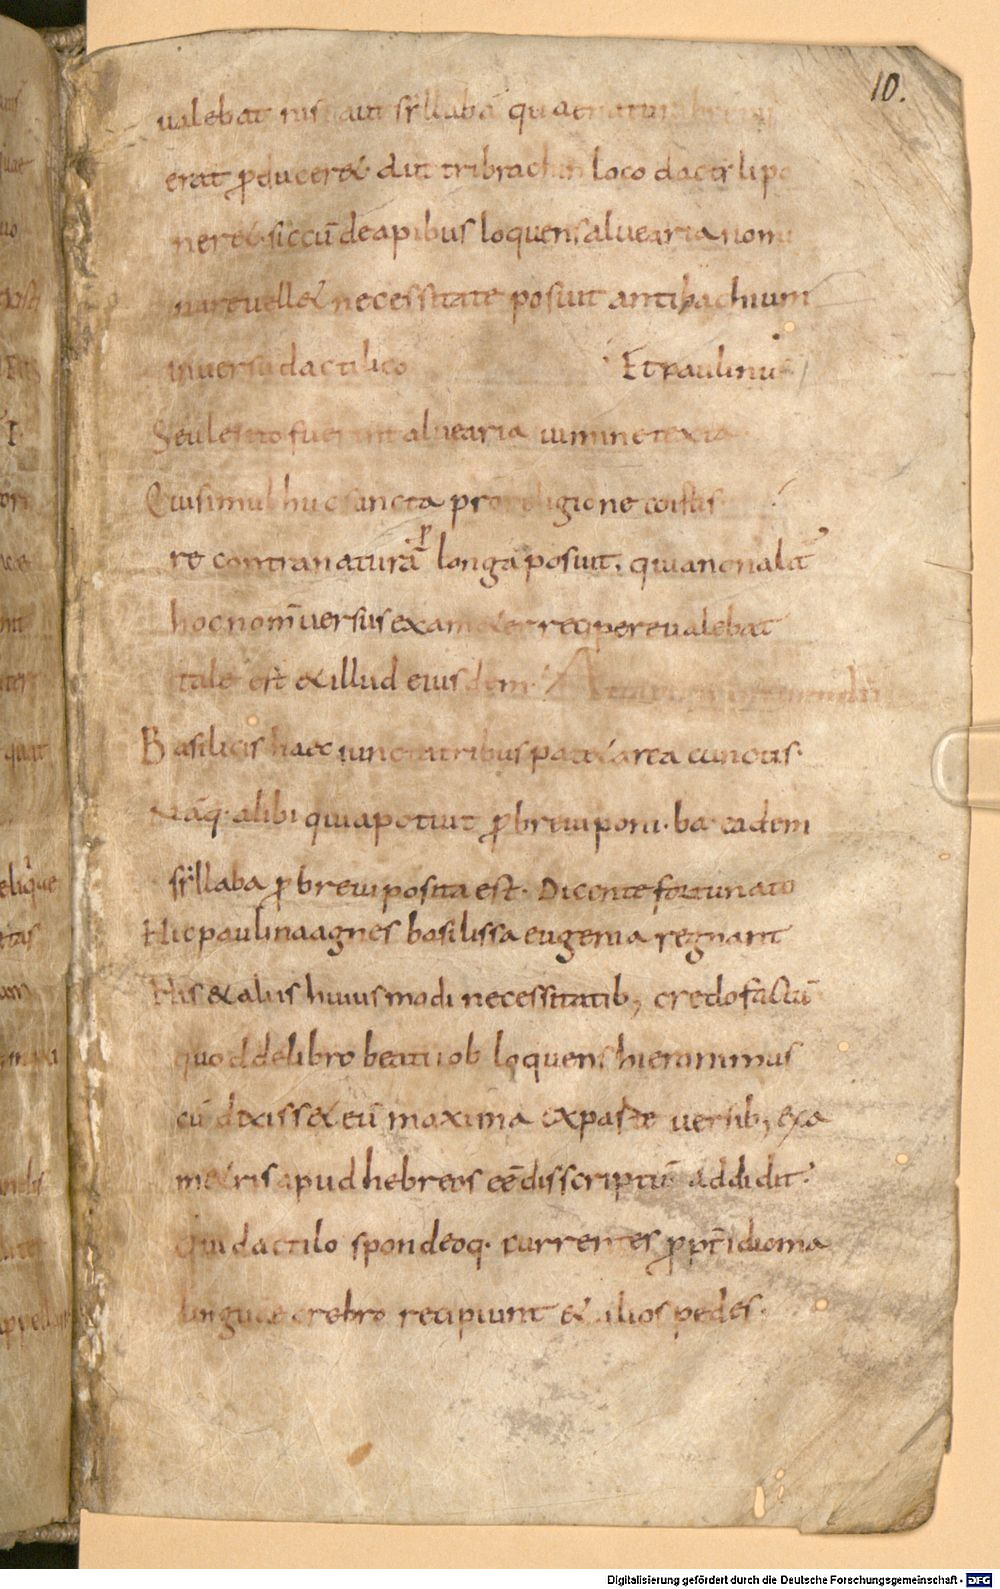 10.
ualebat nisi aut syllabā quae natura breuis
erat ꝓducer& aut tribrachin loco dactyli po
ner&. sic cū de apibus loquens aluearia nomi
nare uell& necessitate posuit antibachium
in uersu dactilico Et paulinus
Seu lento fuerint aluearia uimine texta
Qui simul huc sancta pro religione coistis
re contra naturā p longā posuit. quia non alit̄
hoc nom̄ uersus exam&er recipere ualebat
tale est & illud eiusdem
Basilicis haec iuncta tribus pat& area cunctis.
Nāq. alibi quia potuit ꝓ breui poni. ba eadem
syllaba ꝓ breui posita est. Dicente fortunato
Hic paulina agnes basilissa eugenia regnant
His & aliis huiusmodi necessitatib; credo factū
quod de libro beati iob loquens hieronimus
cū dixiss& eū maxima ex parte uersib; exa
m&ris apud hebreos eē disscriptū addidit.
Qui dactilo spondeoq. currentes ꝓpt̄ idioma
linguae crebro recipiunt & alios pedes.
Digitalisierung gefördert durch die Deutsche Forschungsgemeinschaft - DFG